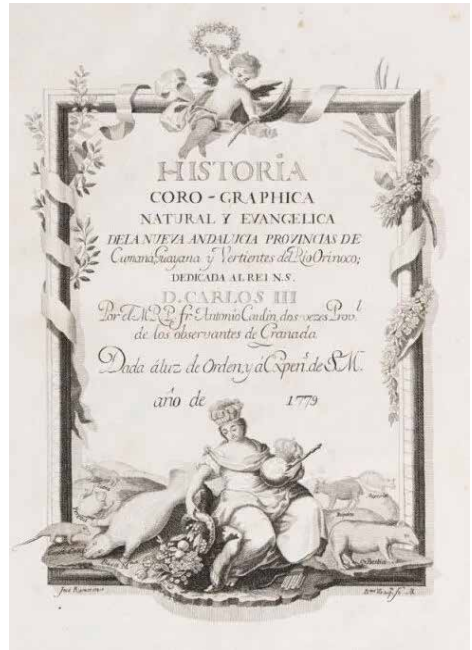 HISTORIA
CORO-GRAPHICA
NATURAL Y EVANGELICA
DELA NUEVA ANDALUCIA PROVINCIAS DE
Cumaná, Guayana y Vertientes del Rio Orinoco;
DEDICADA AL REI N.S.
D. CARLOS III
Por el M.R.P. fr. Antonio Caulin, dos vezes Prov.l
de los observantes de Granada.
Dada á luz de Orden, y á Expen.s de S.M.
año de 1779